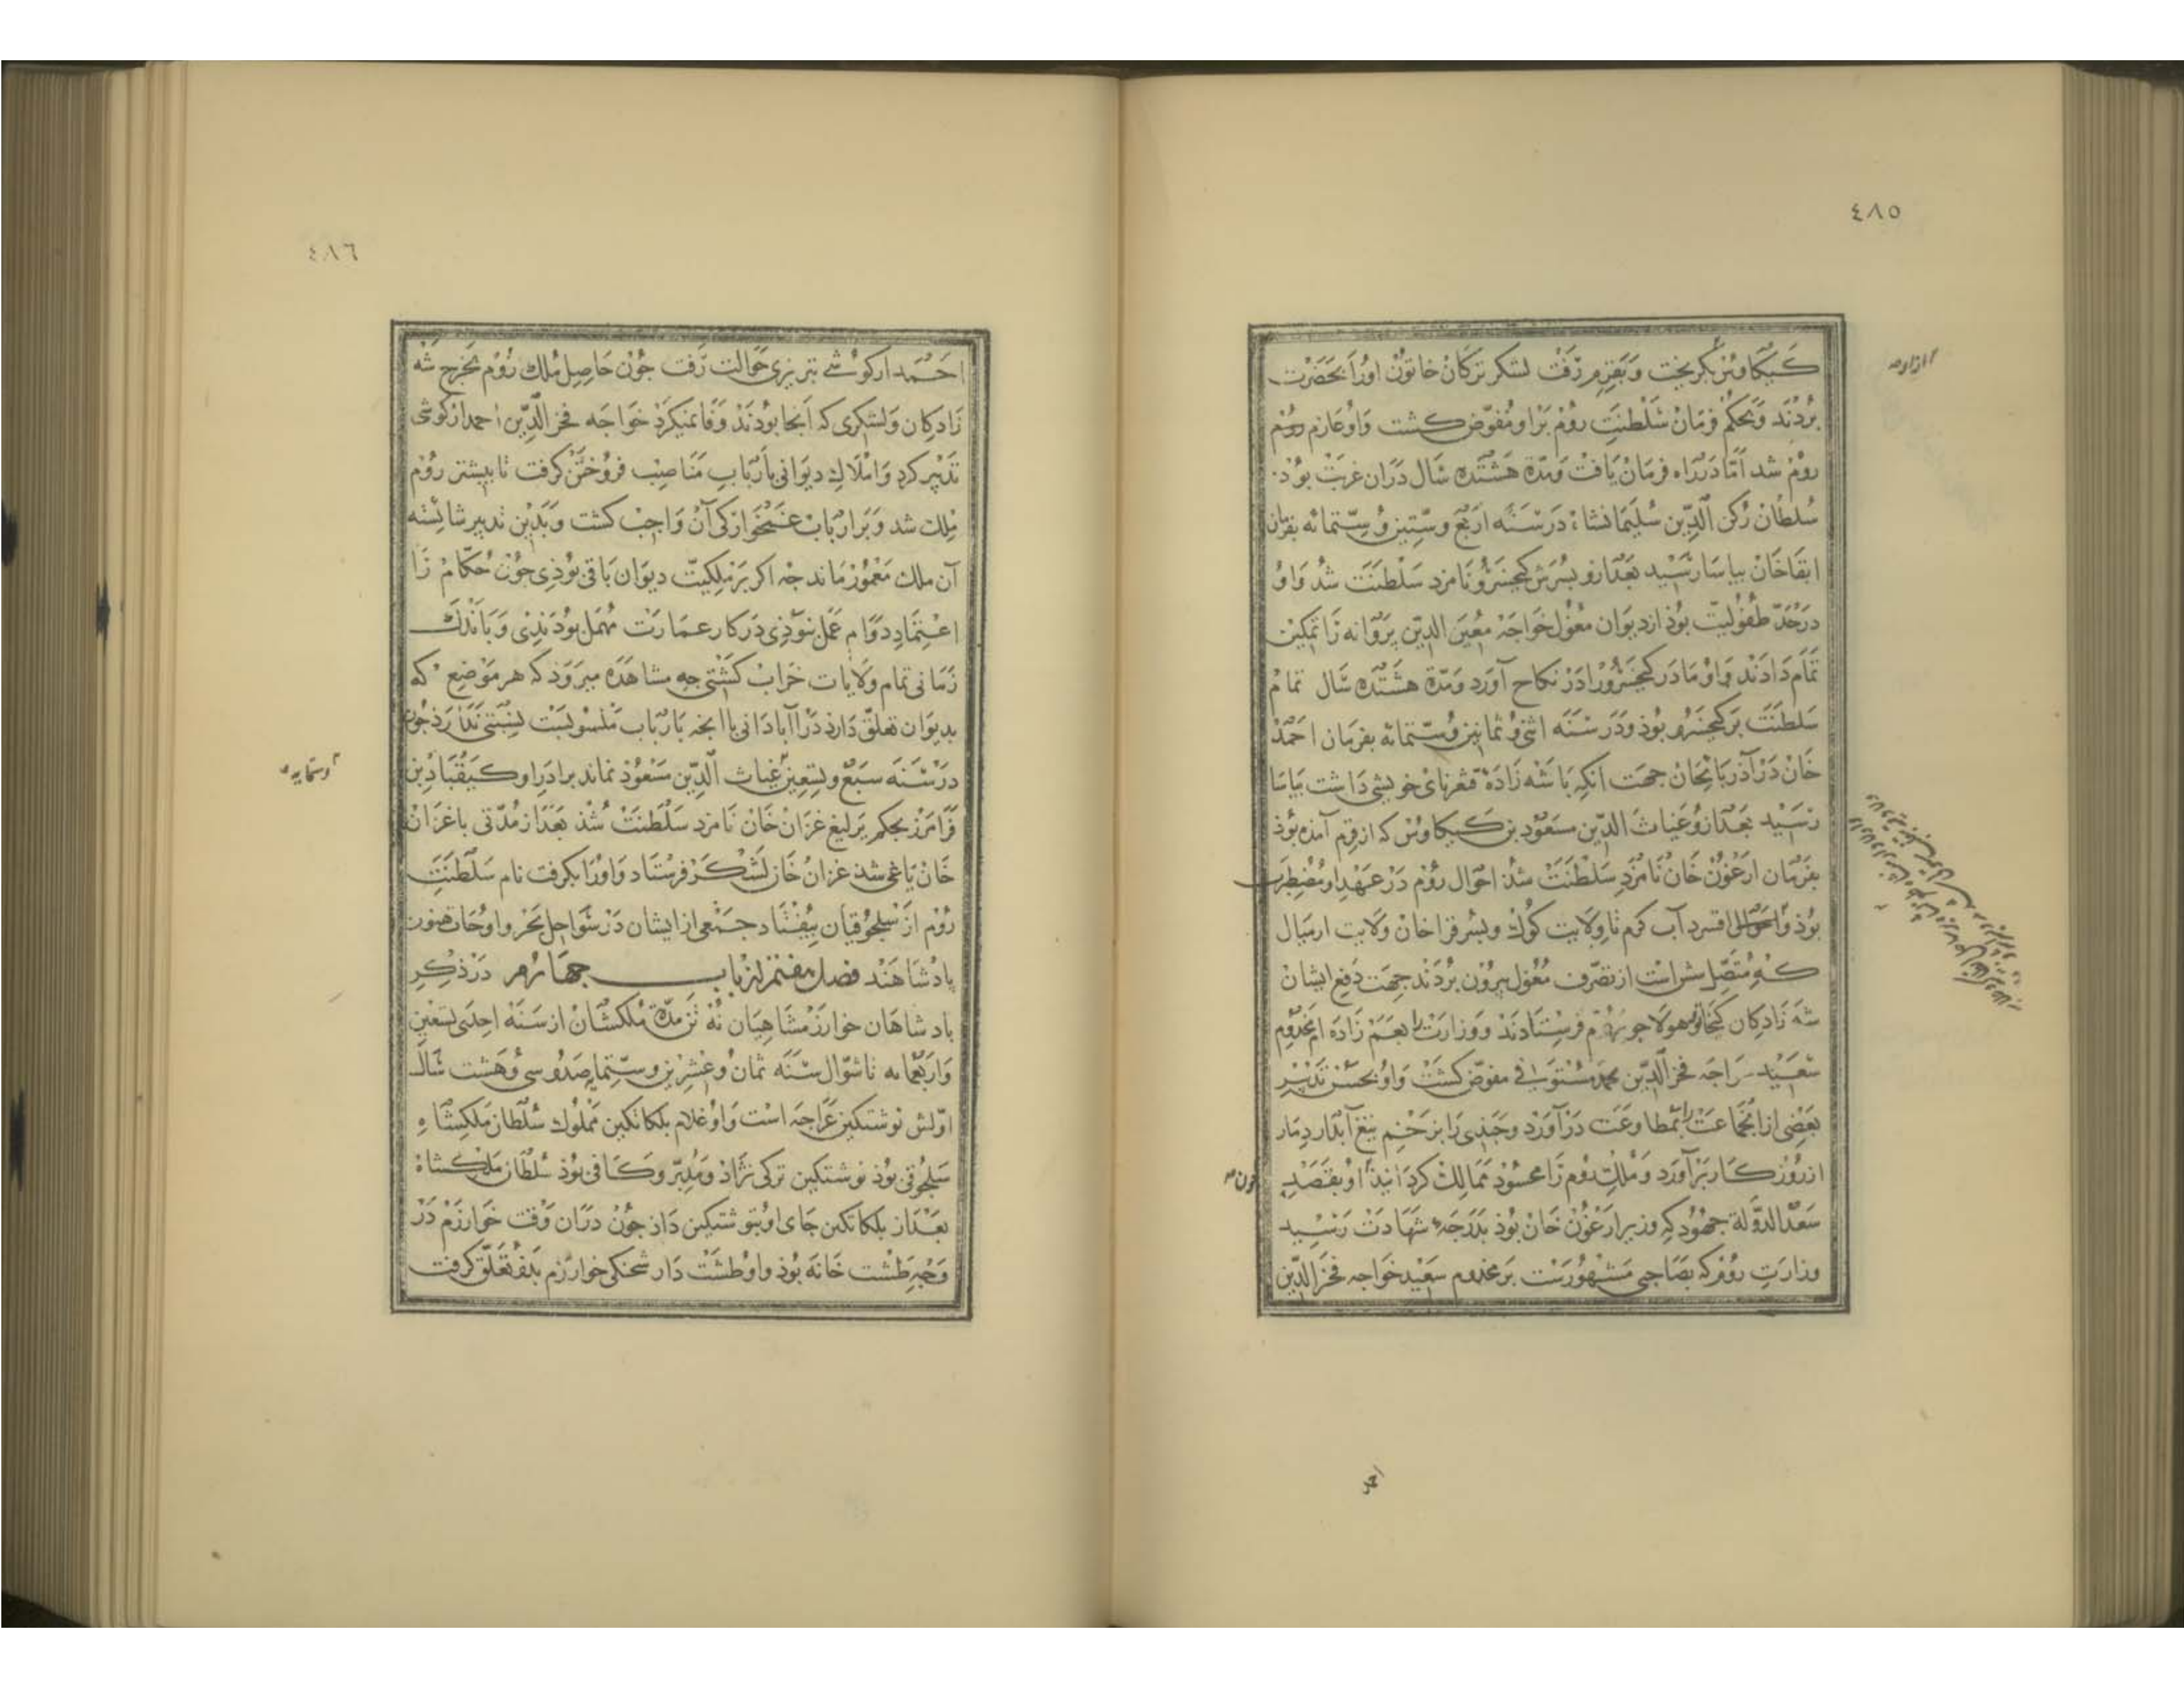 ٤٨٥
كيكاوس بكريخت و بقرم رفت لشكر تركان خاتون او را بحضرت
بردند و بحكم فرمان سلطنت روم برو مفوض كشت و او عازم
روم شد اما در راه فرمان يافت و مدة هشتده سال دران غربت بوذ
سلطان ركن الدين سليمانشاه در سنه اربع و ستين و ستمائه بفرمان
ابقاخان بياسا رسيد بعد ازو بسرش كيخسرو نامزد سلطنت شد و او
در حد طفوليت بوذ از ديوان مغول خواجه معين الدين پروانه را تمكين
تمام دادند و او مادر كيخسرو را در نكاح آورد و مدة هشتده سال تمام
سلطنت بر كيخسرو بوذ و در سنه اثنى و ثمانين و ستمائه بفرمان احمد
خان در آذربايجان جهت انكه با شه زاده قنغرتاى خويشى داشت بياسا
رسيد بعد ازو غياث الدين مسعود بن كيكاوس كه از قرم آمذه بوذ
بفرمان ارغون خان نامزد سلطنت شذ احوال روم در عهد او مضطرب
بوذ و اقسرا آب كرم تا ولايت كوك و بسر قراخان ولايت ارمنال
كه متصل است از تصرف مغول بيرون بردند جهت دفع ايشان
شه زادكان كيخاتو و هولاجو بروم فرستادند و وزارت را بعم زاده ام مخدوم
سعيد خواجه فخر الدين محمد مستوفى مفوض كشت و او بحسن تدبير
بعضى از انجماعت را بمطاوعت درآورد و چندى را بزخم تيغ آبدار دمار
از روزكار برآورد و ملك روم را محسود ممالك كردانيذ او بقصد
چون
سعد الدولة جهود كه وزير ارغون خان بوذ بدرجه شهادت رسيد
وزارت روم كه بصاحبى مشهورست بر مخدوم سعيد خواجه فخر الدين
احمد
٤٨٦
احمد اركوشى تبريزى حوالت رفت جون حاصل ملك روم بخرج شه
زادكان و لشكرى كه آنجا بوذند وفا نميكرد خواجه فخر الدين احمد اركوشى
تدبير كرد و املاك ديوانى بارباب مناصب فروختن كرفت تا بيشتر روم
ملك شد و بر ارباب غمخواركى آن واجب كشت و بدين تدبير شائسته
آن ملك معمور ماند جه اكر بر ملكيت ديوان باقى بوذى جون حكام را
اعتماد دوام عمل نبوذى در كار عمارت مهمل بوذندى و باندك
زمانى تمام ولايات خراب كشتى جه مشاهده ميروذ كه هر موضع كه
بديوان تعلق دارد در آبادانى با آنجه بارباب منسوبست نسبتى ندارد جون
در سنه سبع و تسعين غياث الدين مسعوذ نماند برادر او كيقباد بن
و ستمايه
فرامرز بحكم يرليغ غزان خان نامزد سلطنت شذ بعد از مدتى با غزان
خان ياغى شذ غزان خان لشكر فرستاد و او را بكرفت نام سلطنت
روم از سلجوقيان بيفتاد جمعى از ايشان در سواحل بحر و اوجات هنوز
پادشاهند فصل هفتم از باب چهارم در ذكر
پادشاهان خوارزمشاهيان نه تن مدة ملكشان از سنه احدى تسعين
و اربعمائه تا شوال سنه ثمان و عشرين و ستمايه صد و سى و هشت سال
اولش نوشتكين غراجه است و او غلام بلكاتكين مملوك سلطان ملكشاه
سلجوقى بوذ نوشتكين تركى نژاد و مدبر و كافى بوذ سلطان ملكشاه
بعد از بلكاتكين جاى او بنوشتكين داذ جون دران وقت خوارزم در
وجه طشت خانه بوذ و او طشت دار شحنكى خوارزم بدو تعلق كرفت